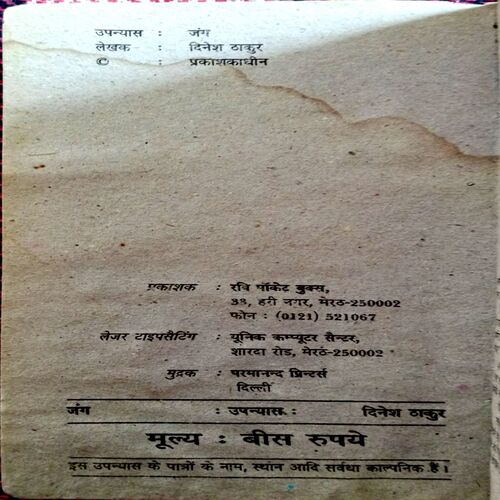 उपन्यास : जंग
लेखक : दिनेश ठाकुर
© : प्रकाशकाधीन
प्रकाशक : रवि पॉकेट बुक्स,
33, हरी नगर, मेरठ-250002
फोन : (0121) 521067
लेजर टाइपसैटिंग : यूनिक कम्प्यूटर सैन्टर,
शारदा रोड, मेरठ-250002
मुद्रक : परमानन्द प्रिन्टर्स
दिल्ली
जंग : उपन्यास : दिनेश ठाकुर
मूल्य : बीस रुपये
इस उपन्यास के पात्रों के नाम, स्थान आदि सर्वथा काल्पनिक हैं।